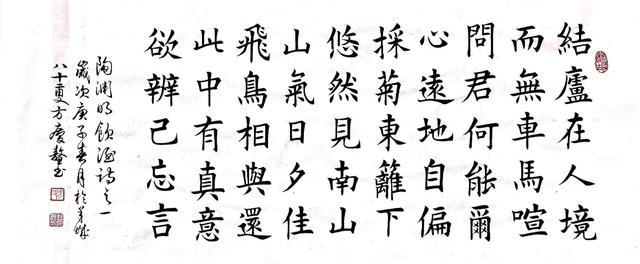 結廬在人境
而無車馬喧
問君何能爾
心遠地自偏
採菊東籬下
悠然見南山
山氣日夕佳
飛鳥相與還
此中有真意
欲辨己忘言
陶渊明飲酒詩之一
歲次庚子春月於
八十叟方慶书